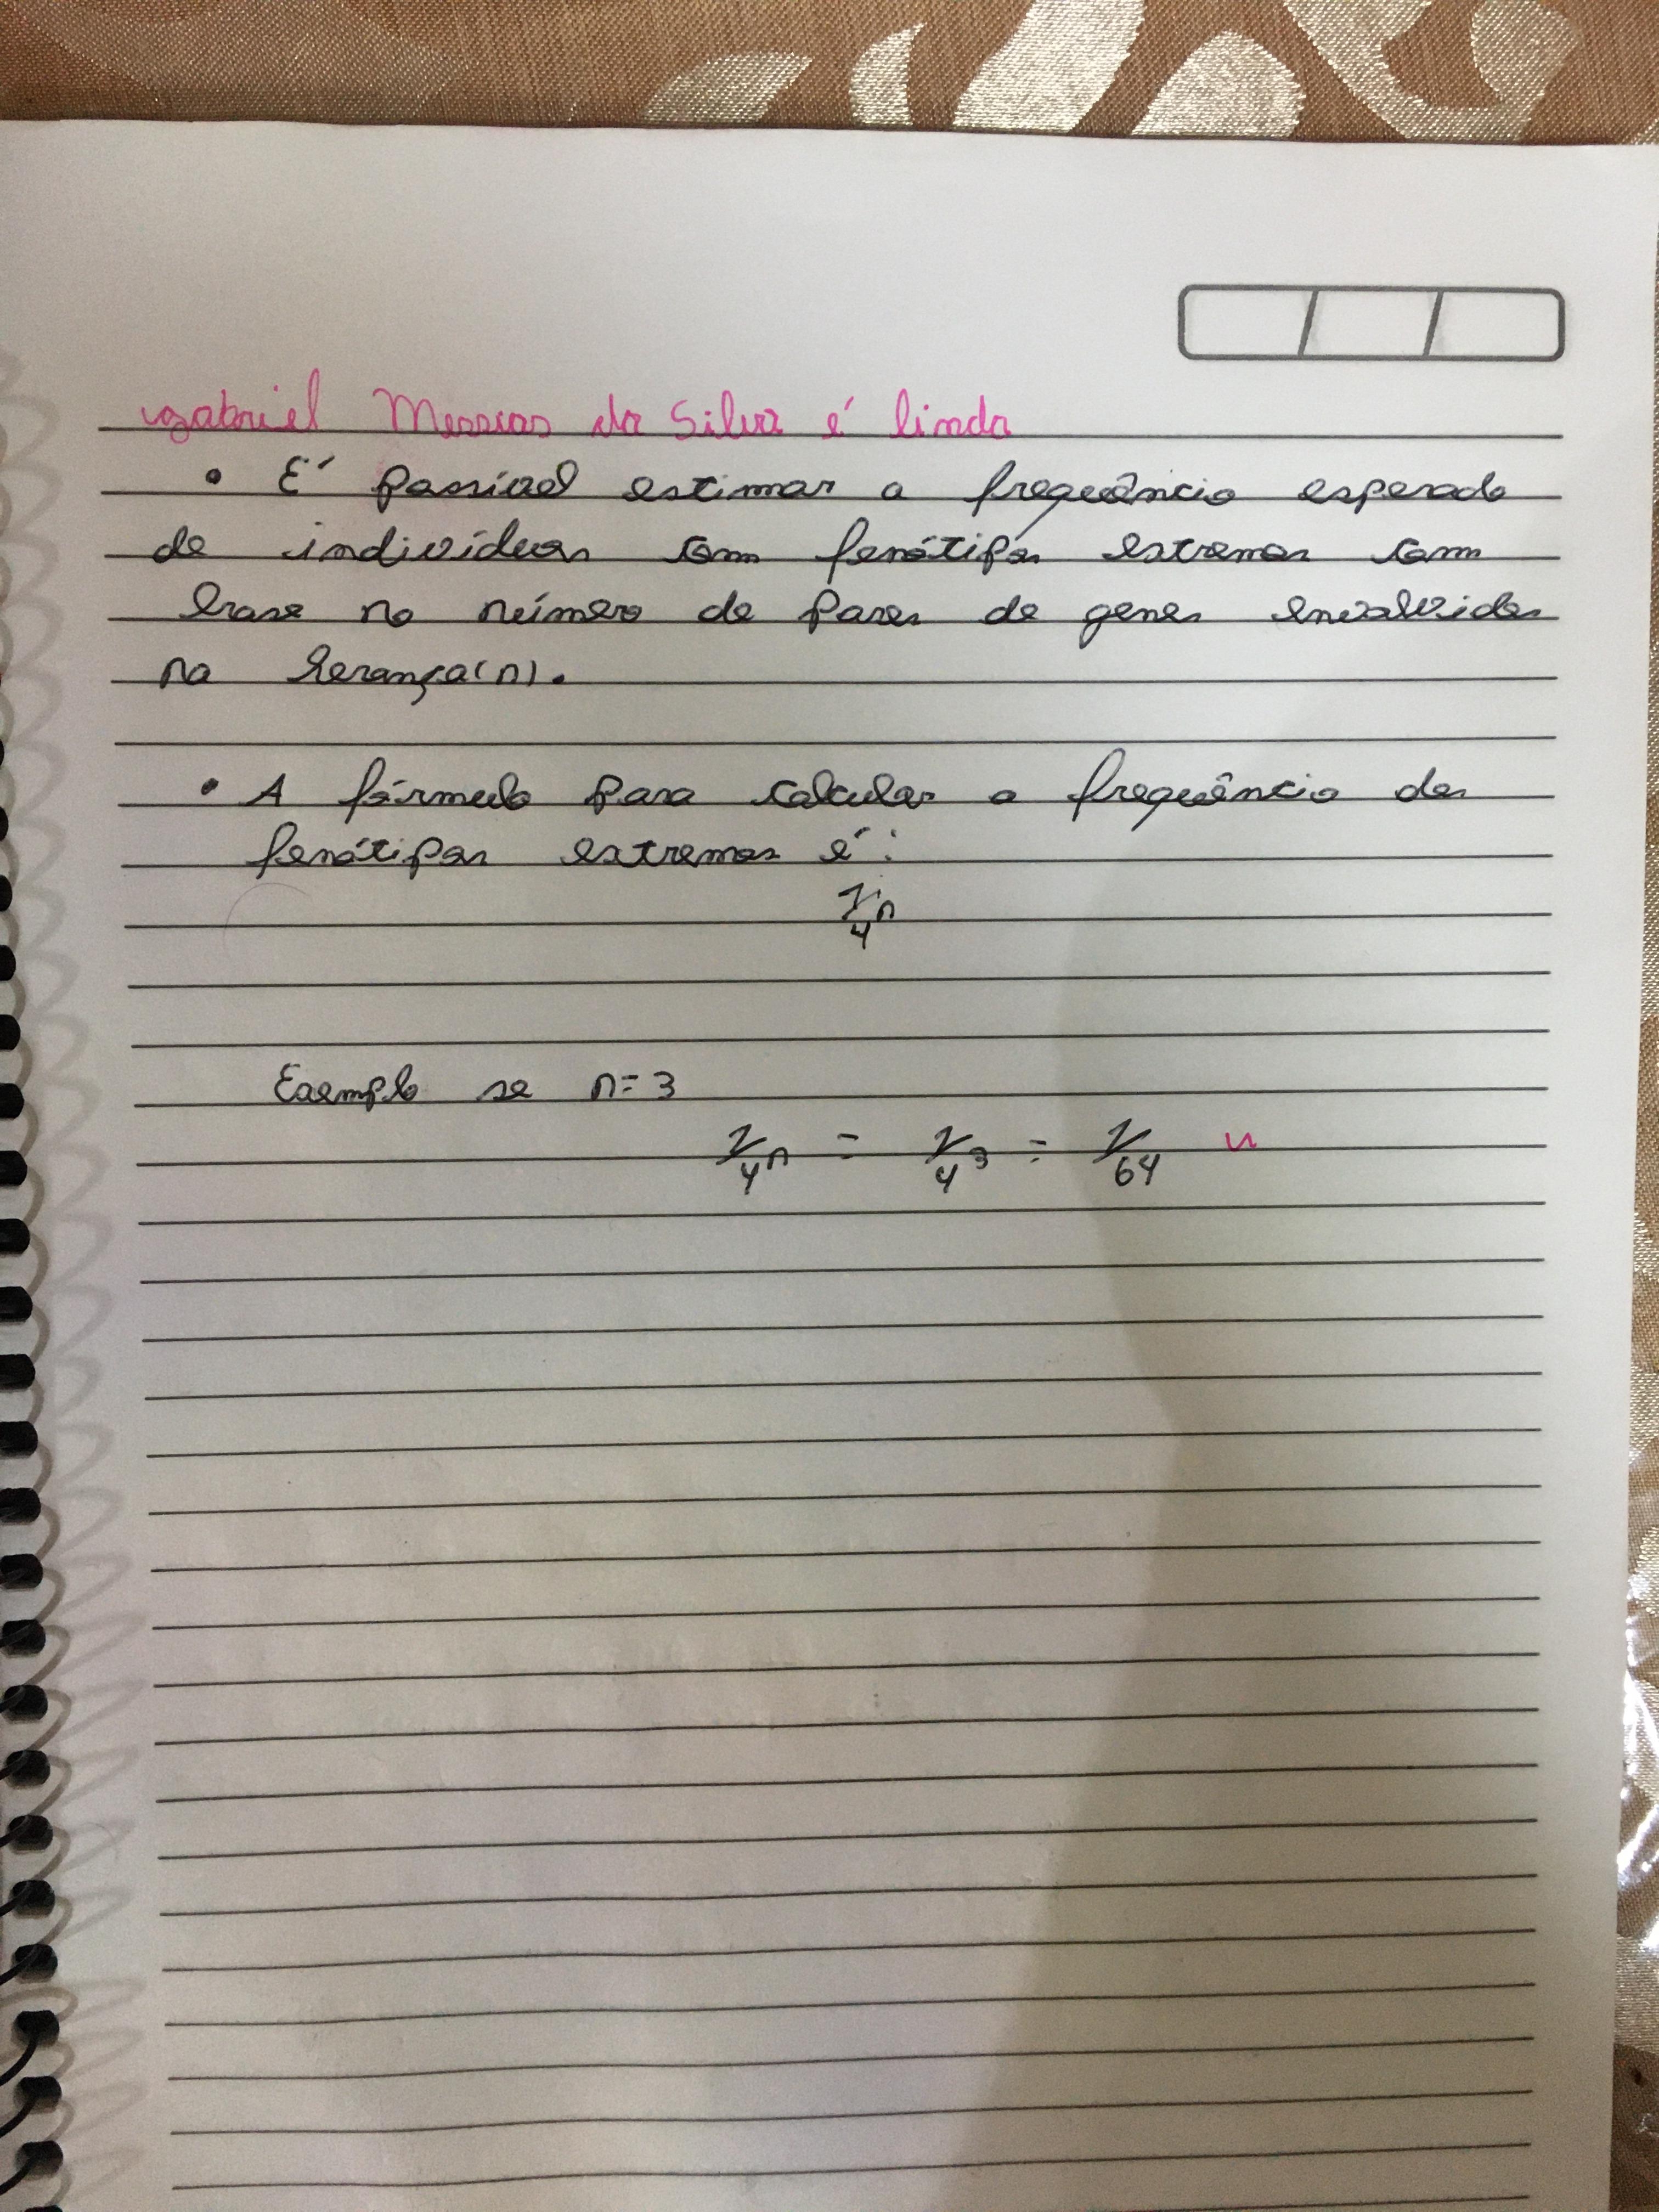 Gabriel Messias da Silva é lindo
• É possível estimar a frequência esperada
de indivíduos com fenótipos extremos com
base no número de pares de genes envolvidos
na herança(n).
• A fórmula para calcular a frequência dos
fenótipos extremos é:
1/4ⁿ
Exemplo se n=3
1/4ⁿ = 1/4³ = 1/64